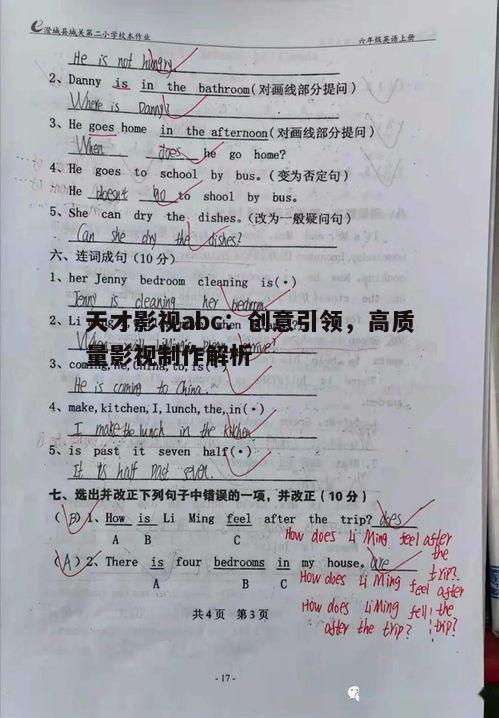 澄城县城关第二小学校本作业 六年级英语上册
He is not hungry
2、Danny is in the bathroom(对画线部分提问)
Where is Danny?
3、He goes home in the afternoon(对画线部分提问)
When does he go home?
4、He goes to school by bus.(变为否定句)
He doesn't go to shool by bus.
5、She can dry the dishes.(改为一般疑问句)
Can she dry the dishes?
六、连词成句(10分)
1、her Jenny bedroom cleaning is(.)
Jenny is cleaning her bedroom
天才影视abc：创意引领，高质
量影视制作解析
2、Li
3、coming, He, China, to, is(.)
He is coming to China.
4、make,kitchen,I,lunch,the,in(.)
I make the lunch in the kitchen
5、is past it seven half(.)
It is half past seven.
七、选出并改正下列句子中错误的一项，并改正(10分)
(B)1、How is Li Ming feel after the trip? does
A B C
How does Li Ming feel after the trip?
(A)2、There is four bedrooms in my house. are
A B C
How does Li Ming feel after the trip?
How does Li Ming feel
after the trip?
共4页 第3页
-17-